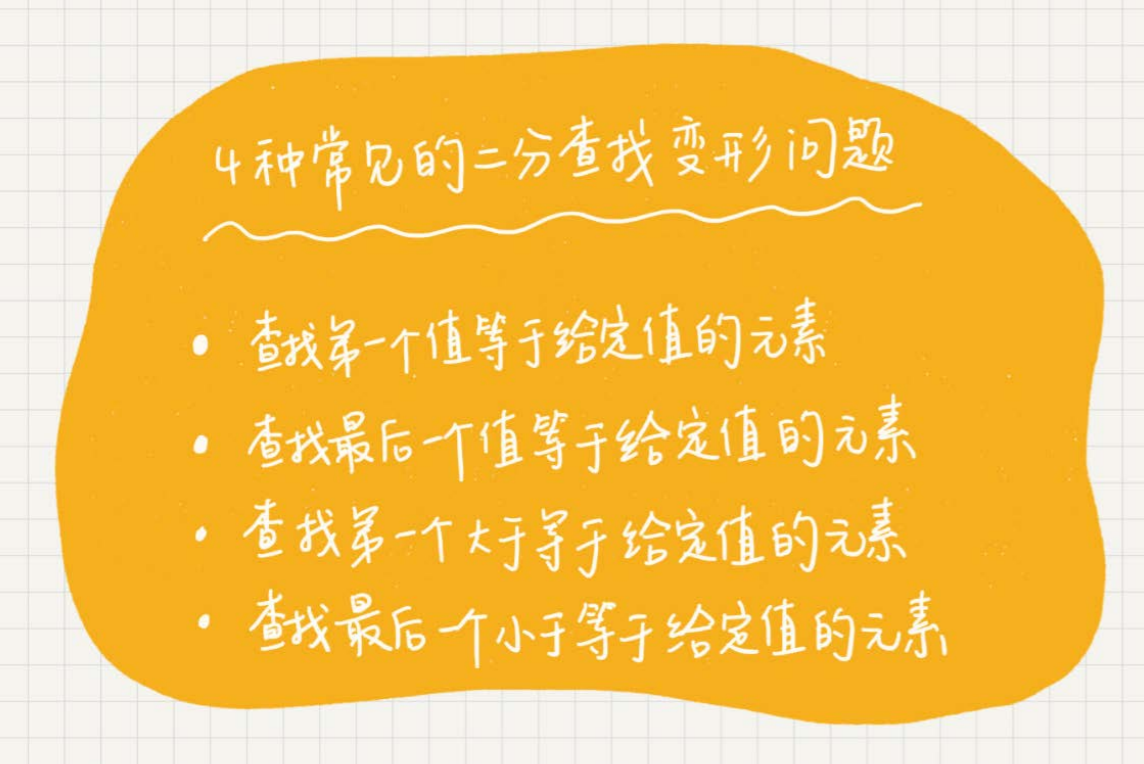 4种常见的二分查找变形问题
• 查找第一个值等于给定值的元素
• 查找最后一个值等于给定值的元素
• 查找第一个大于等于给定值的元素
• 查找最后一个小于等于给定值的元素